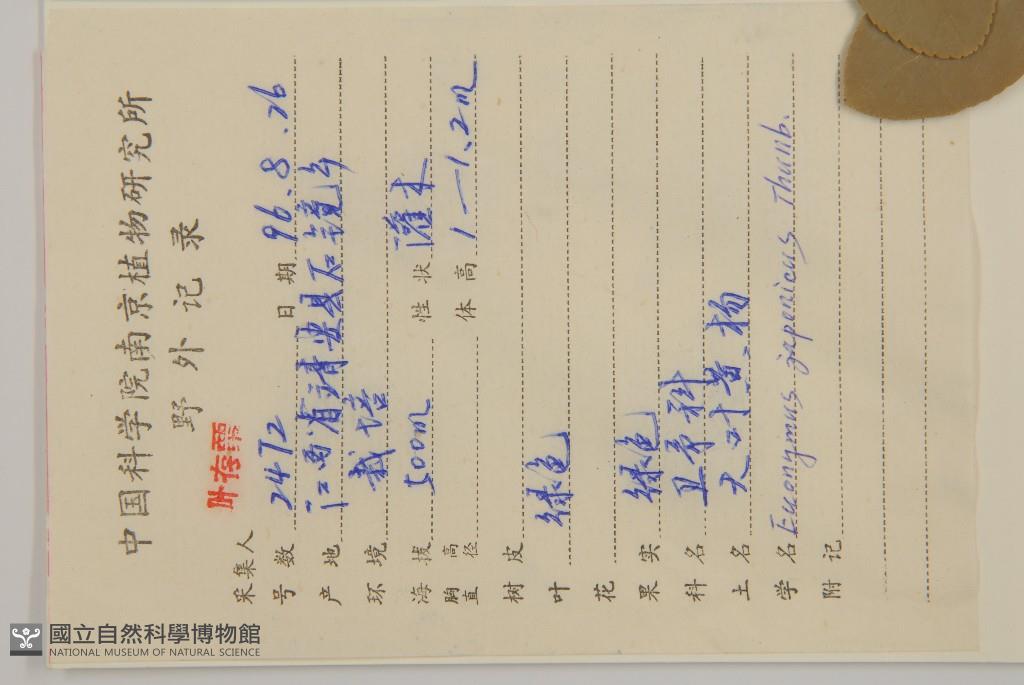 中国科学院南京植物研究所
野外记录
采集人 叶存粟
号数 2472 日期 96.8.26
产地 江西省靖安县石镜乡
环境 栽培
海拔 500m 性状 灌木
胸高直径 体高 1—1.2m
树皮
叶 绿色
花
果实 绿色
科名 卫矛科
土名 大叶黄杨
学名 Euonymus japonicus Thunb.
附记
國立自然科學博物館
NATIONAL MUSEUM OF NATURAL SCIENCE